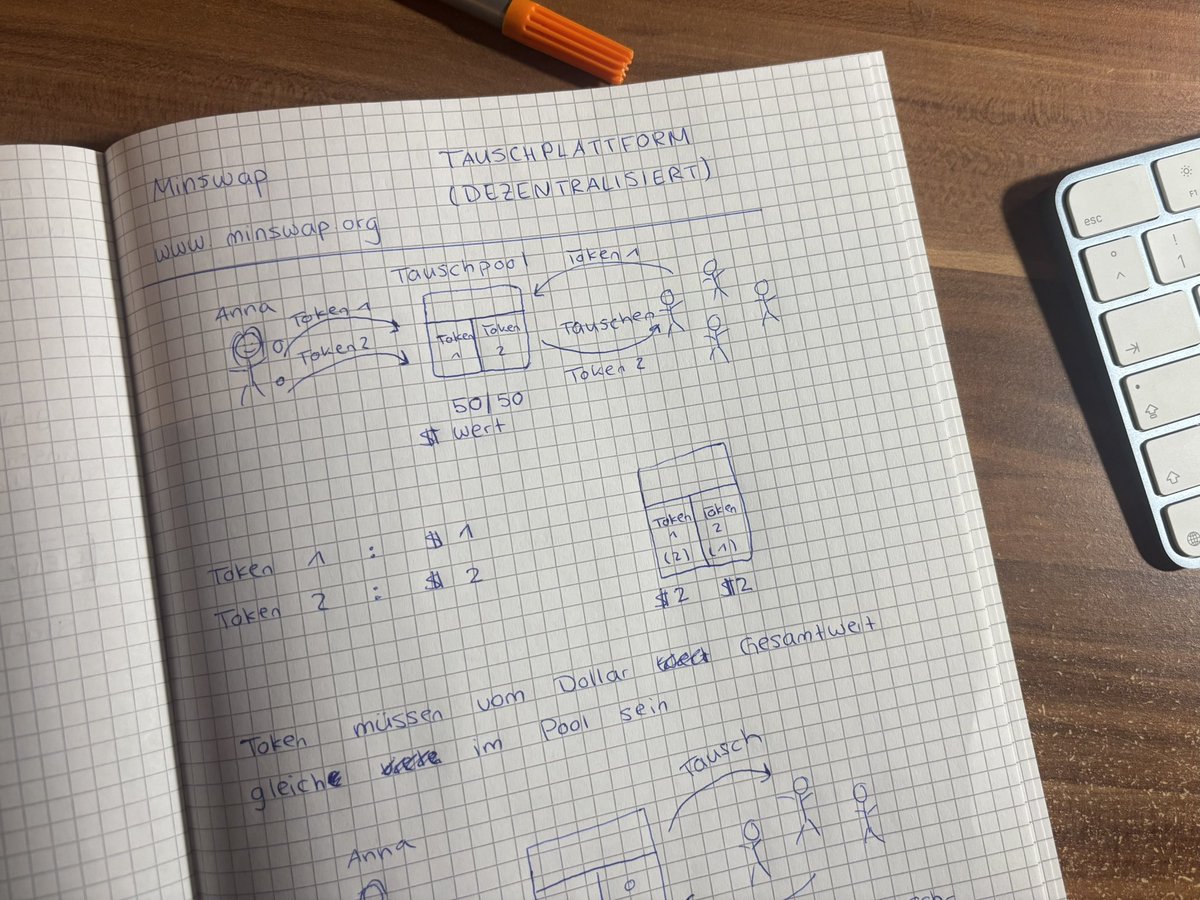 Minswap
TAUSCHPLATTFORM
(DEZENTRALISIERT)
www.minswap.org
Anna
Token 1
Token 2
Tauschpool
Token 1
Token 2
50/50
$ wert
Token 1
Tauschen
Token 2
Token 1 : $ 1
Token 2 : $ 2
Token 1 (2)
Token 2 (1)
$2 $2
Token müssen vom Dollar Gesamtwert
gleich im Pool sein
Anna
Tausch
esc
F1
!
1
°
^